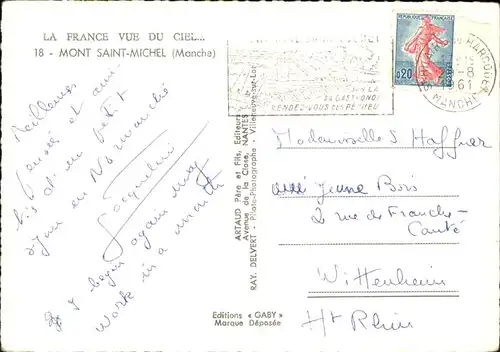 LA FRANCE VUE DU CIEL...
18 - MONT SAINT-MICHEL (Manche)
Meilleures
pensées et ami-
tiés d'un petit
séjour en Normandie
Jacqueline
I begin again my
work in a month
ARTAUD Père et Fils, Editeurs
Avenue de la Close, NANTES
RAY. DELVERT - Pilote-Photographe - Villeneuve-sur-Lot
Editions « GABY »
Marque Déposée
REPUBLIQUE FRANÇAISE
0,20
POSTES
HARCOUET
8
1961
MANCHE
SUR LA
RENDEZ-VOUS DES PÊCHEURS
Mademoiselle S Haffner
Jeune Bois
2 rue de Franche-
Comté
Wittenheim
Ht Rhin